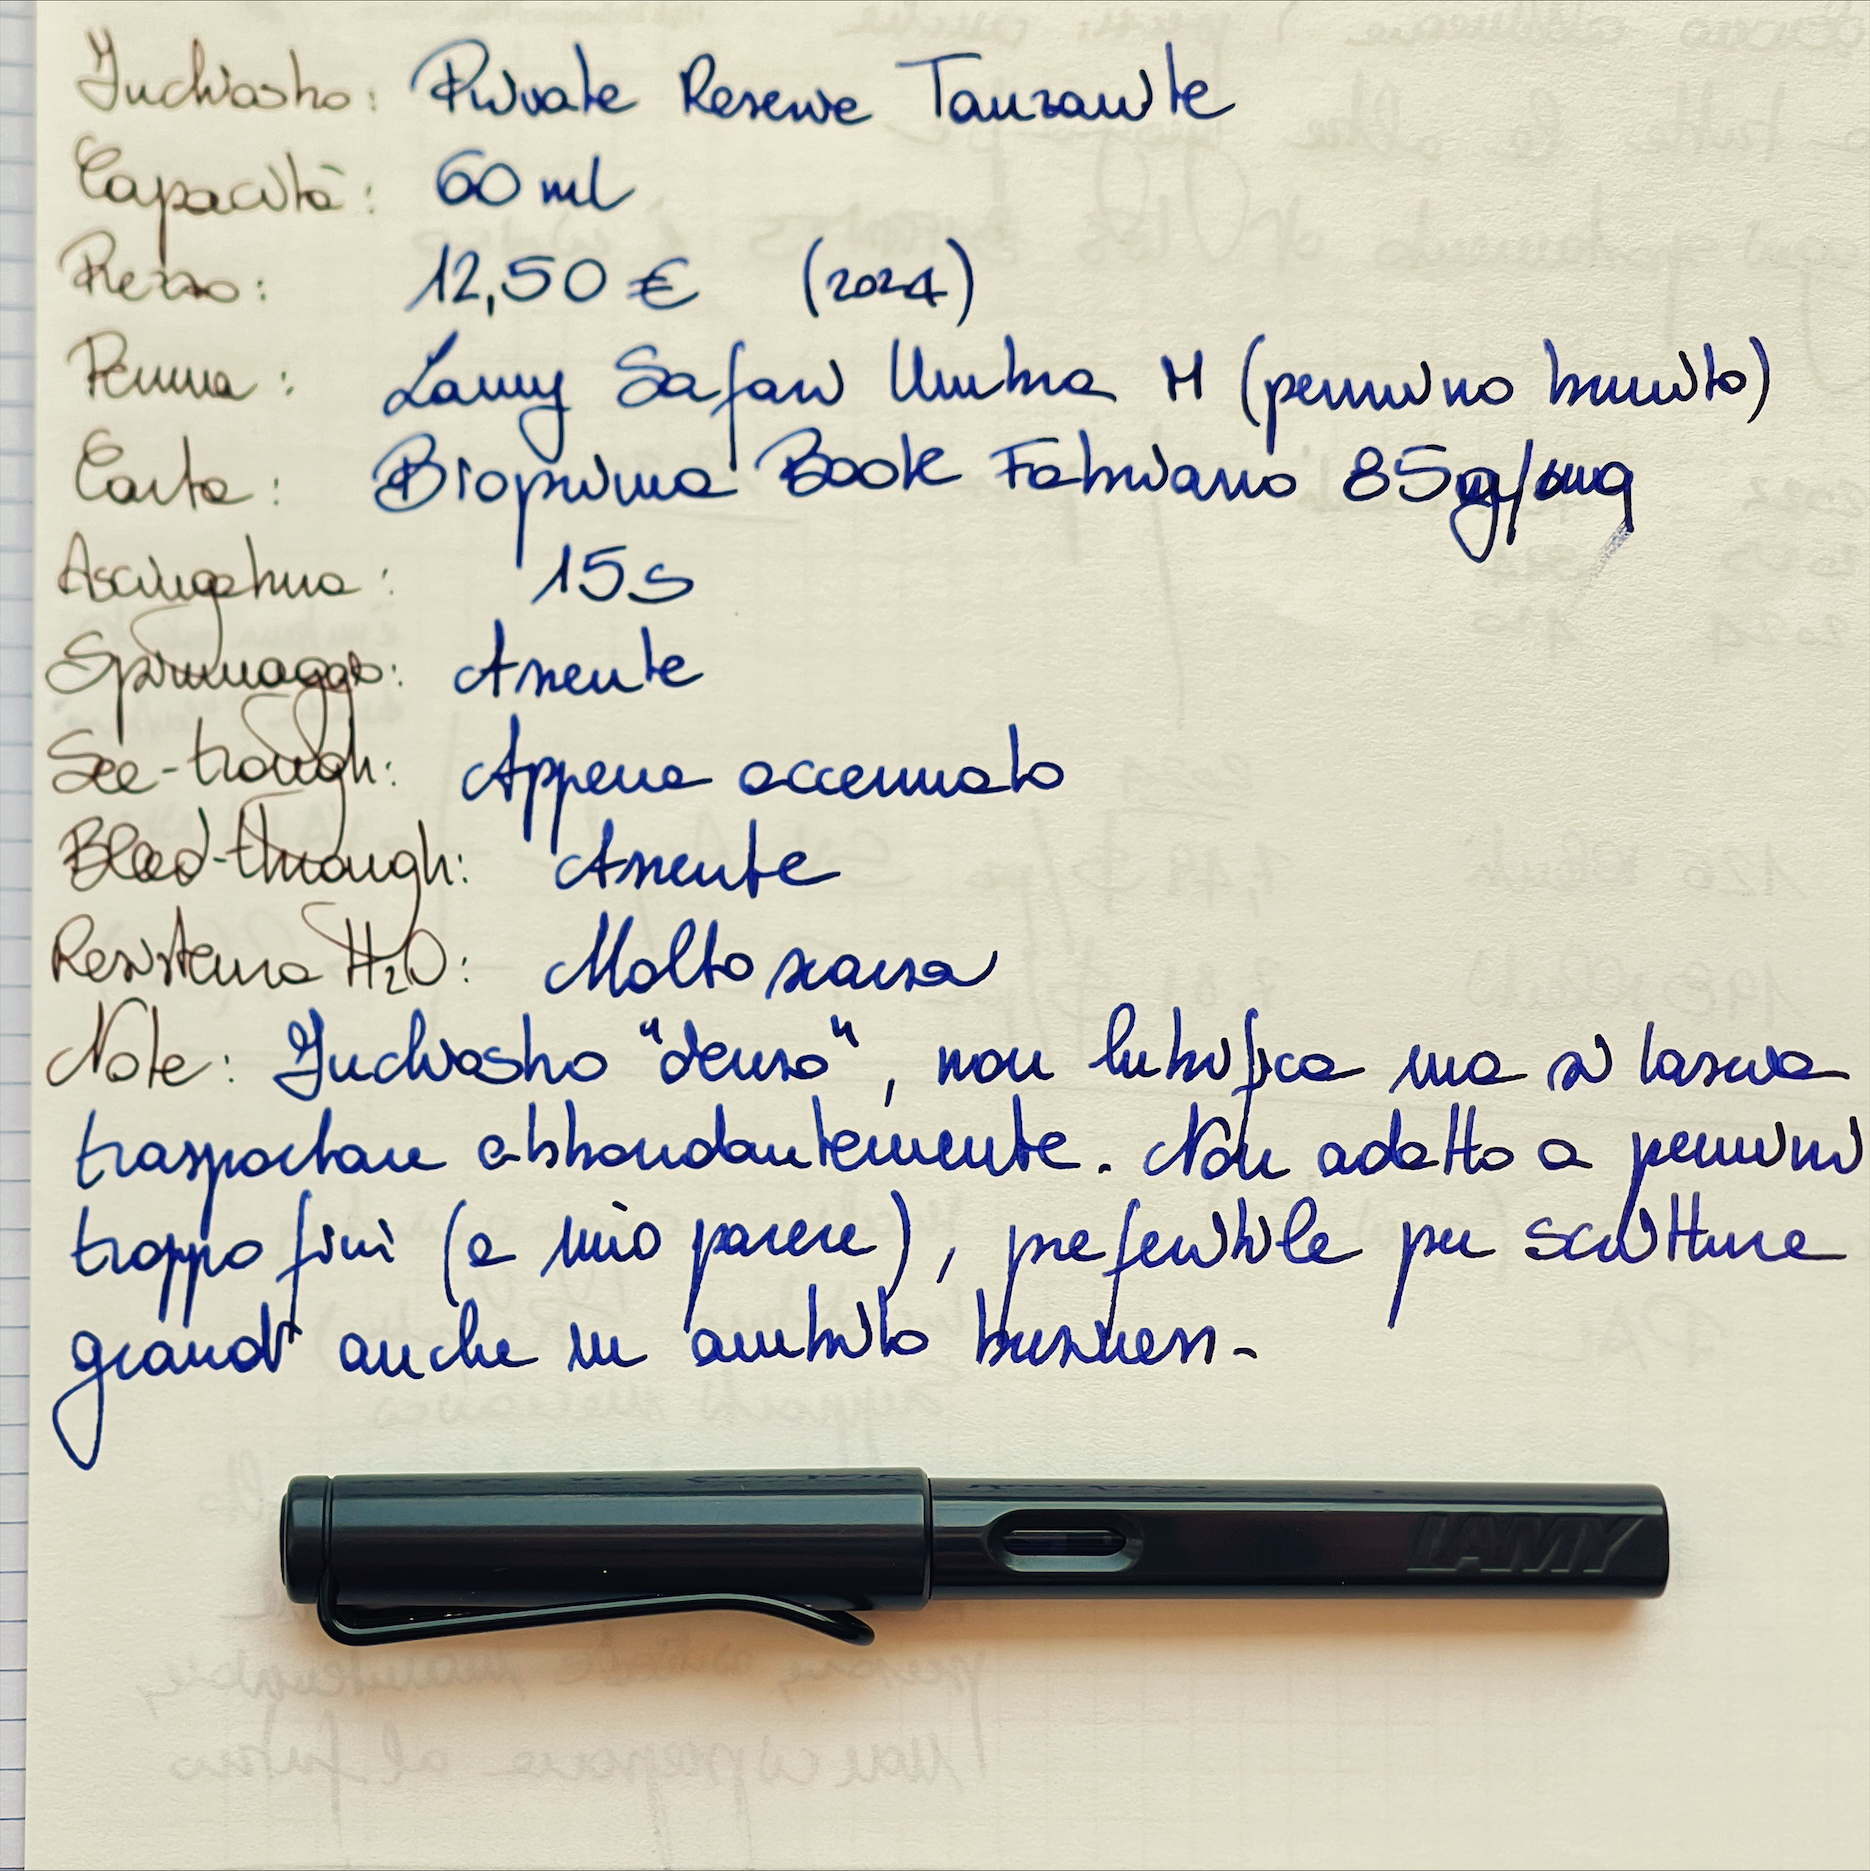 Inchiostro: Private Reserve Tanzanite
Capacità: 60 ml
Prezzo: 12,50 € (2024)
Penna: Lamy Safari Umbra M (pennino brunito)
Carta: Bioprima Book Fabriano 85g/mq
Asciugatura: 15s
Spiumaggio: Assente
See-trough: Appena accennato
Bleed-through: Assente
Resistenza H₂O: Molto scarsa
Note: Inchiostro "denso", non lubrifica ma si lascia
trasportare abbondantemente. Non adatto a pennini
troppo fini (a mio parere), preferibile per scritture
grandi anche in ambito business.
LAMY